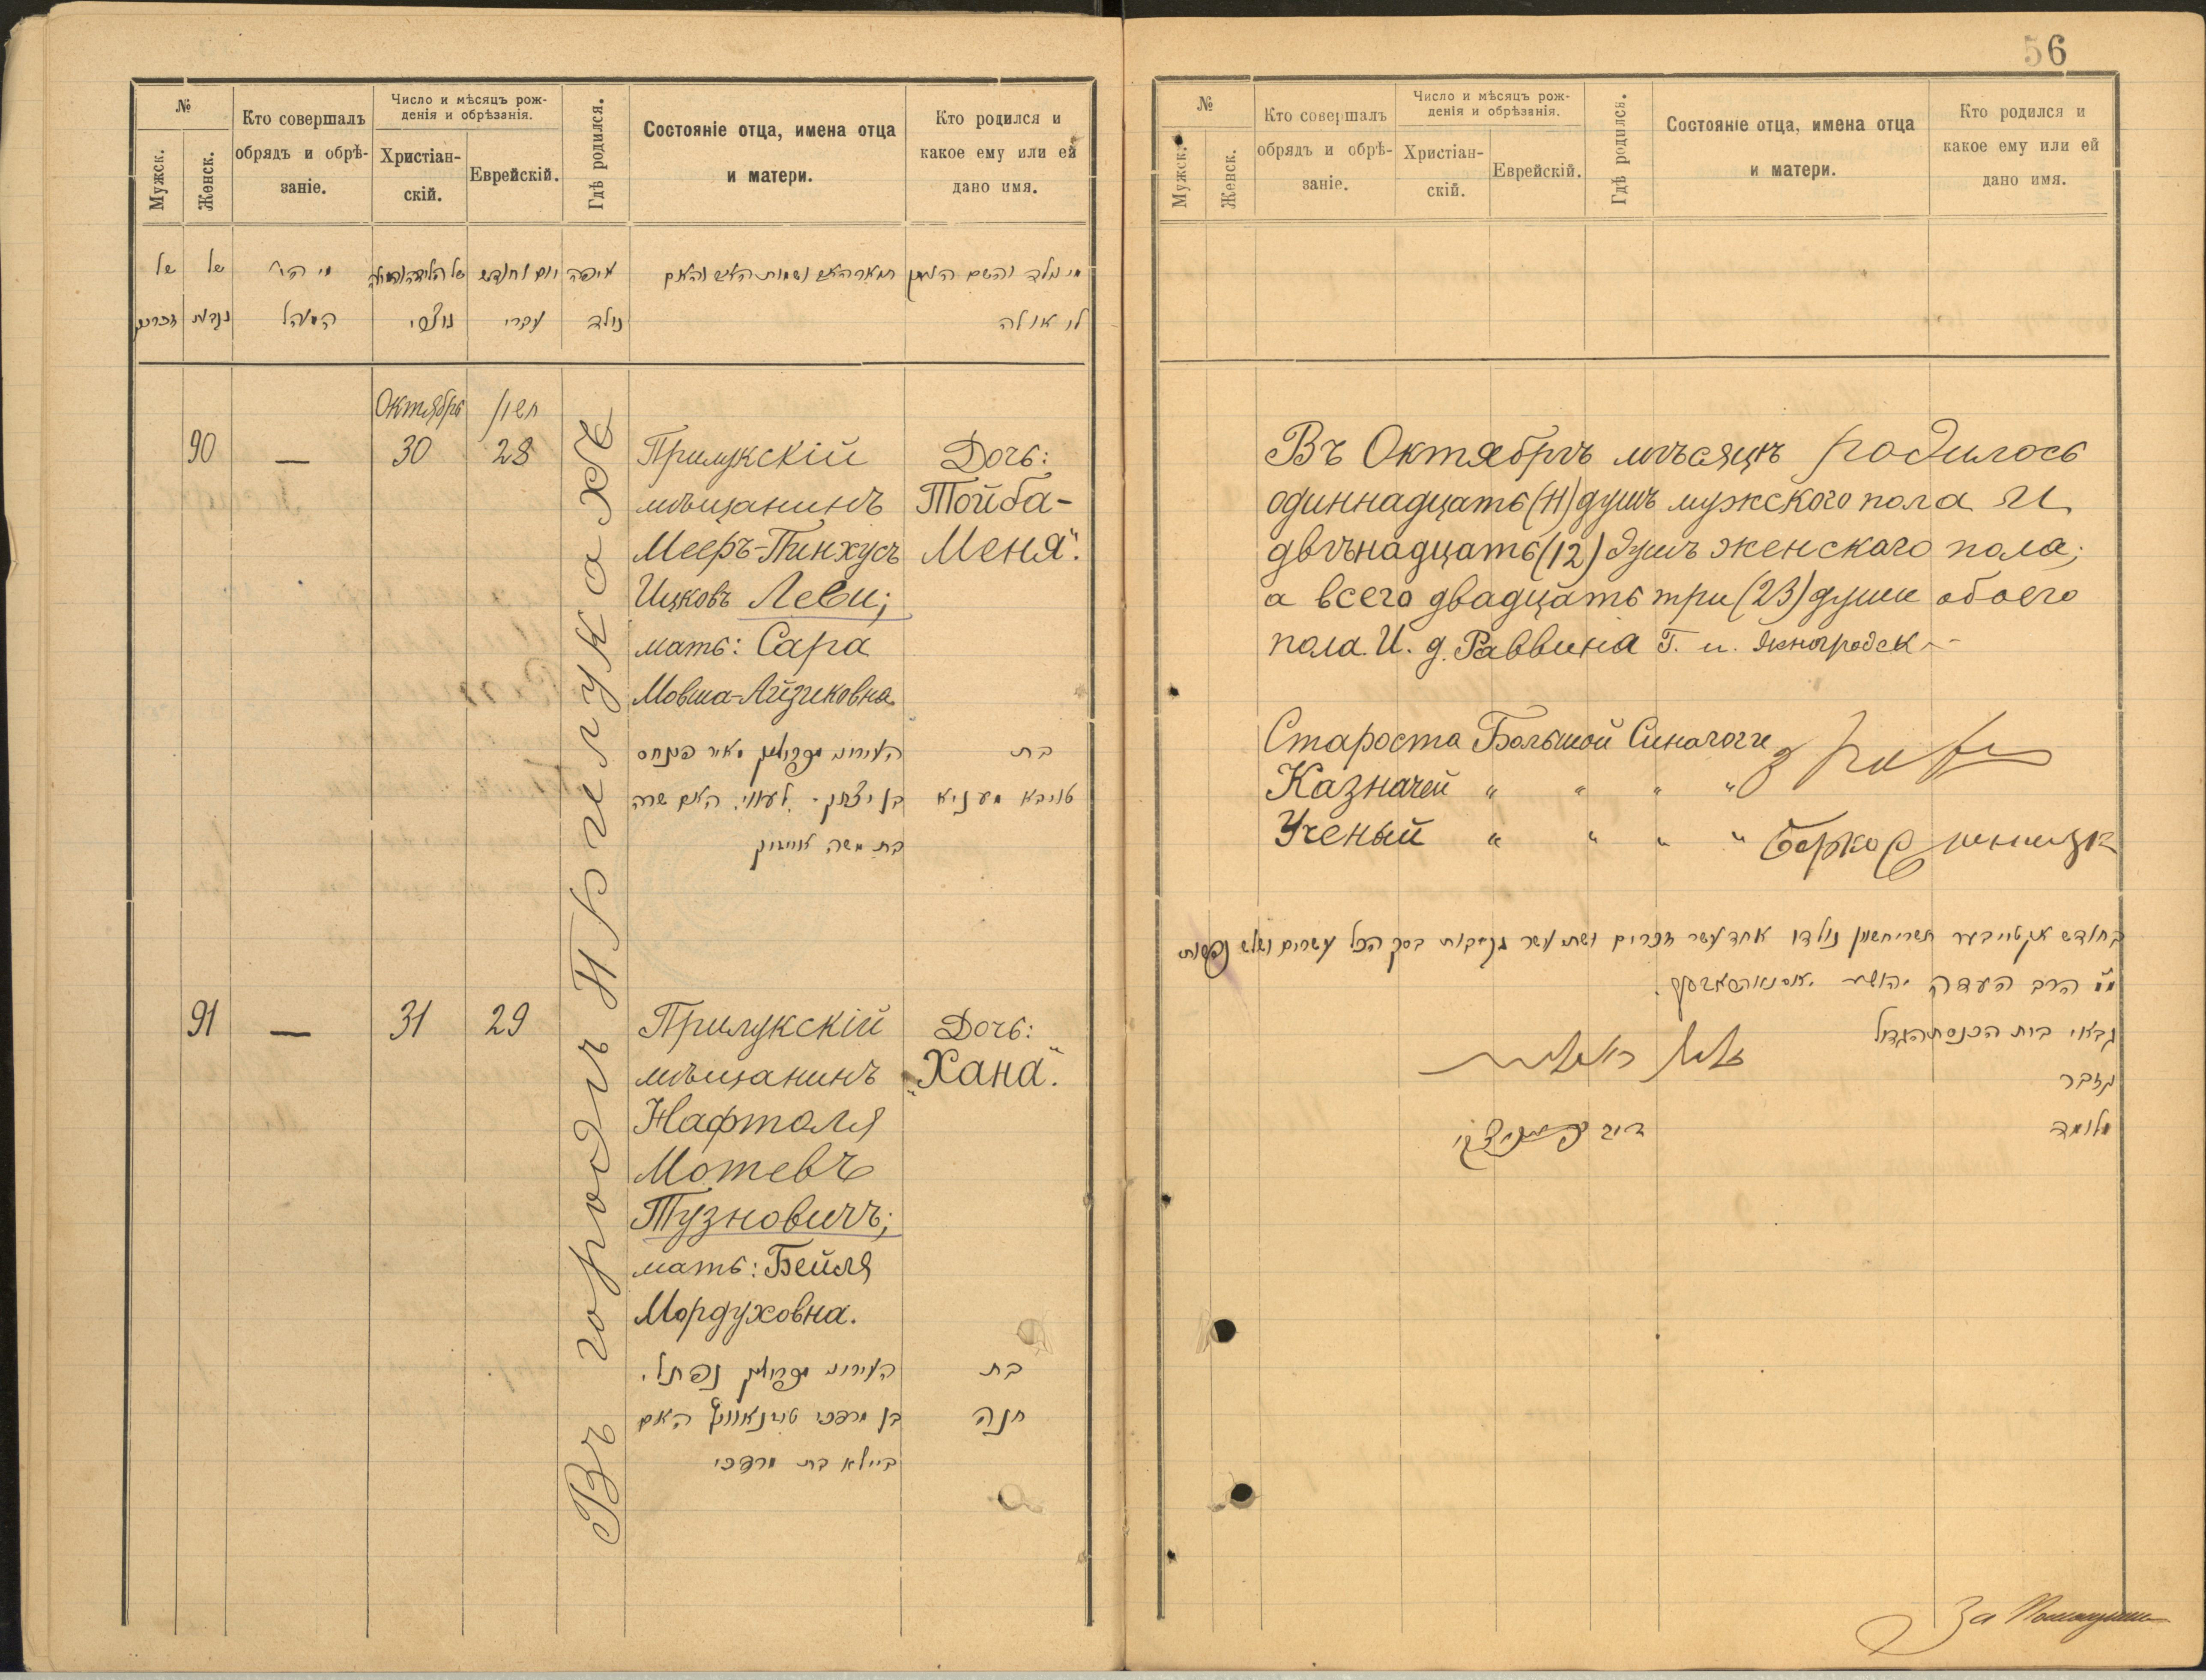 №
Мужск.
Женск.
Кто совершалъ
обрядъ и обрѣ-
заніе.
Число и мѣсяцъ рож-
денія и обрѣзанія.
Христіан-
скій.
Еврейскій.
Гдѣ родился.
Состояніе отца, имена отца
и матери.
Кто родился и
какое ему или ей
дано имя.
של
זכרים
של
נקבות
מי הי'
המוהל
נוצרי
יום וחודש
עברי
איפה
נולד
ושמות האב והאם
מי נולד והשם הניתן
לו או לה
Октябрь
חשון
90
—
30
28
Въ городѣ Прилукахъ
Прилукскій
мѣщанинъ
Мееръ-Пинхусъ
Ицковъ Леви;
мать: Сара
Мовша-Айзиковна
העירוני מפרילוק מאיר פנחס
בן יצחק לעווי. האם שרה
בת משה אייזיק
Дочь:
Тойба-
Меня".
בת
טויבא מעניא
91
—
31
29
Прилукскій
мѣщанинъ
Нафтоля
Мотевъ
Тузновичъ;
мать: Бейля
Мордуховна.
העירוני מפרילוק נפתלי
בן מרדכי האם
ביילא בת מרדכי
Дочь:
„Хана".
בת
חנה
56
№
Мужск.
Женск.
Кто совершалъ
обрядъ и обрѣ-
заніе.
Число и мѣсяцъ рож-
денія и обрѣзанія.
Христіан-
скій.
Еврейскій.
Гдѣ родился.
Состояніе отца, имена отца
и матери.
Кто родился и
какое ему или ей
дано имя.
Въ Октябрѣ мѣсяцѣ родилось
одиннадцать (11) душъ мужского пола и
двѣнадцать (12) душъ женскаго пола;
а всего двадцать три (23) души обоего
пола. И. д. Раввина
Староста Большой Синагоги
Казначей " " " "
Ученый " " " "
בחודש אקטויבער תשרי חשון נולדו אחד עשר זכרים ושתי עשר נקבות בסך הכל עשרים ושלש נפשות
הרב העדה יהושע
גבאי בית הכנסת הגדול
גזבר
מלומד
За